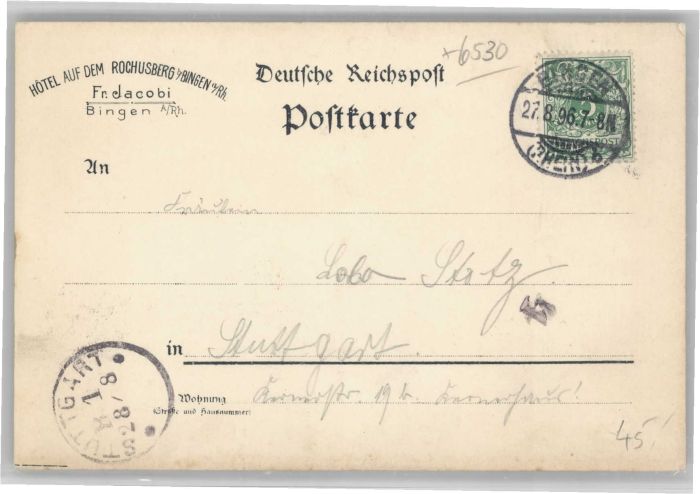 HÔTEL AUF DEM ROCHUSBERG b/BINGEN a/Rh.
Fr. Jacobi
Bingen a/Rh.
+6530
Deutsche Reichspost
Postkarte
BINGEN
27.8.96.7-8N.
(RHEIN)
An
Fräulein
Stotz.
in Stuttgart.
Wohnung
(Straße und Hausnummer)
Kernerstr. 19 b. Kernerhaus!
STUTTGART
28/8
45.-